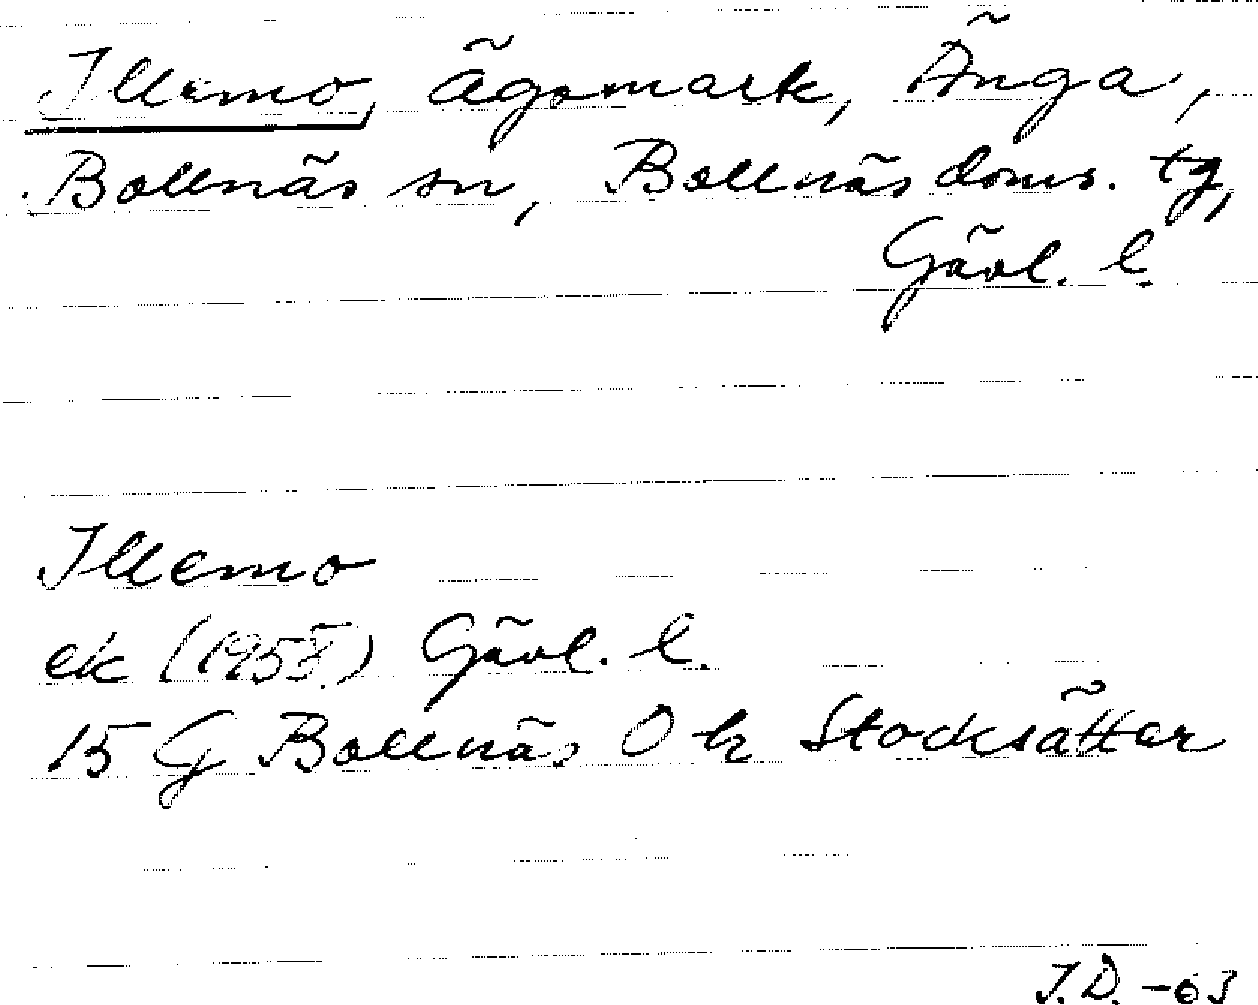 Illemo, ägomark, Änga,
Bollnäs sn, Bollnäs doms. tg,
Gävl. l.
Illemo
ek (1958) Gävl. l.
15 G Bollnäs O h Stocksätter
I.D. -63